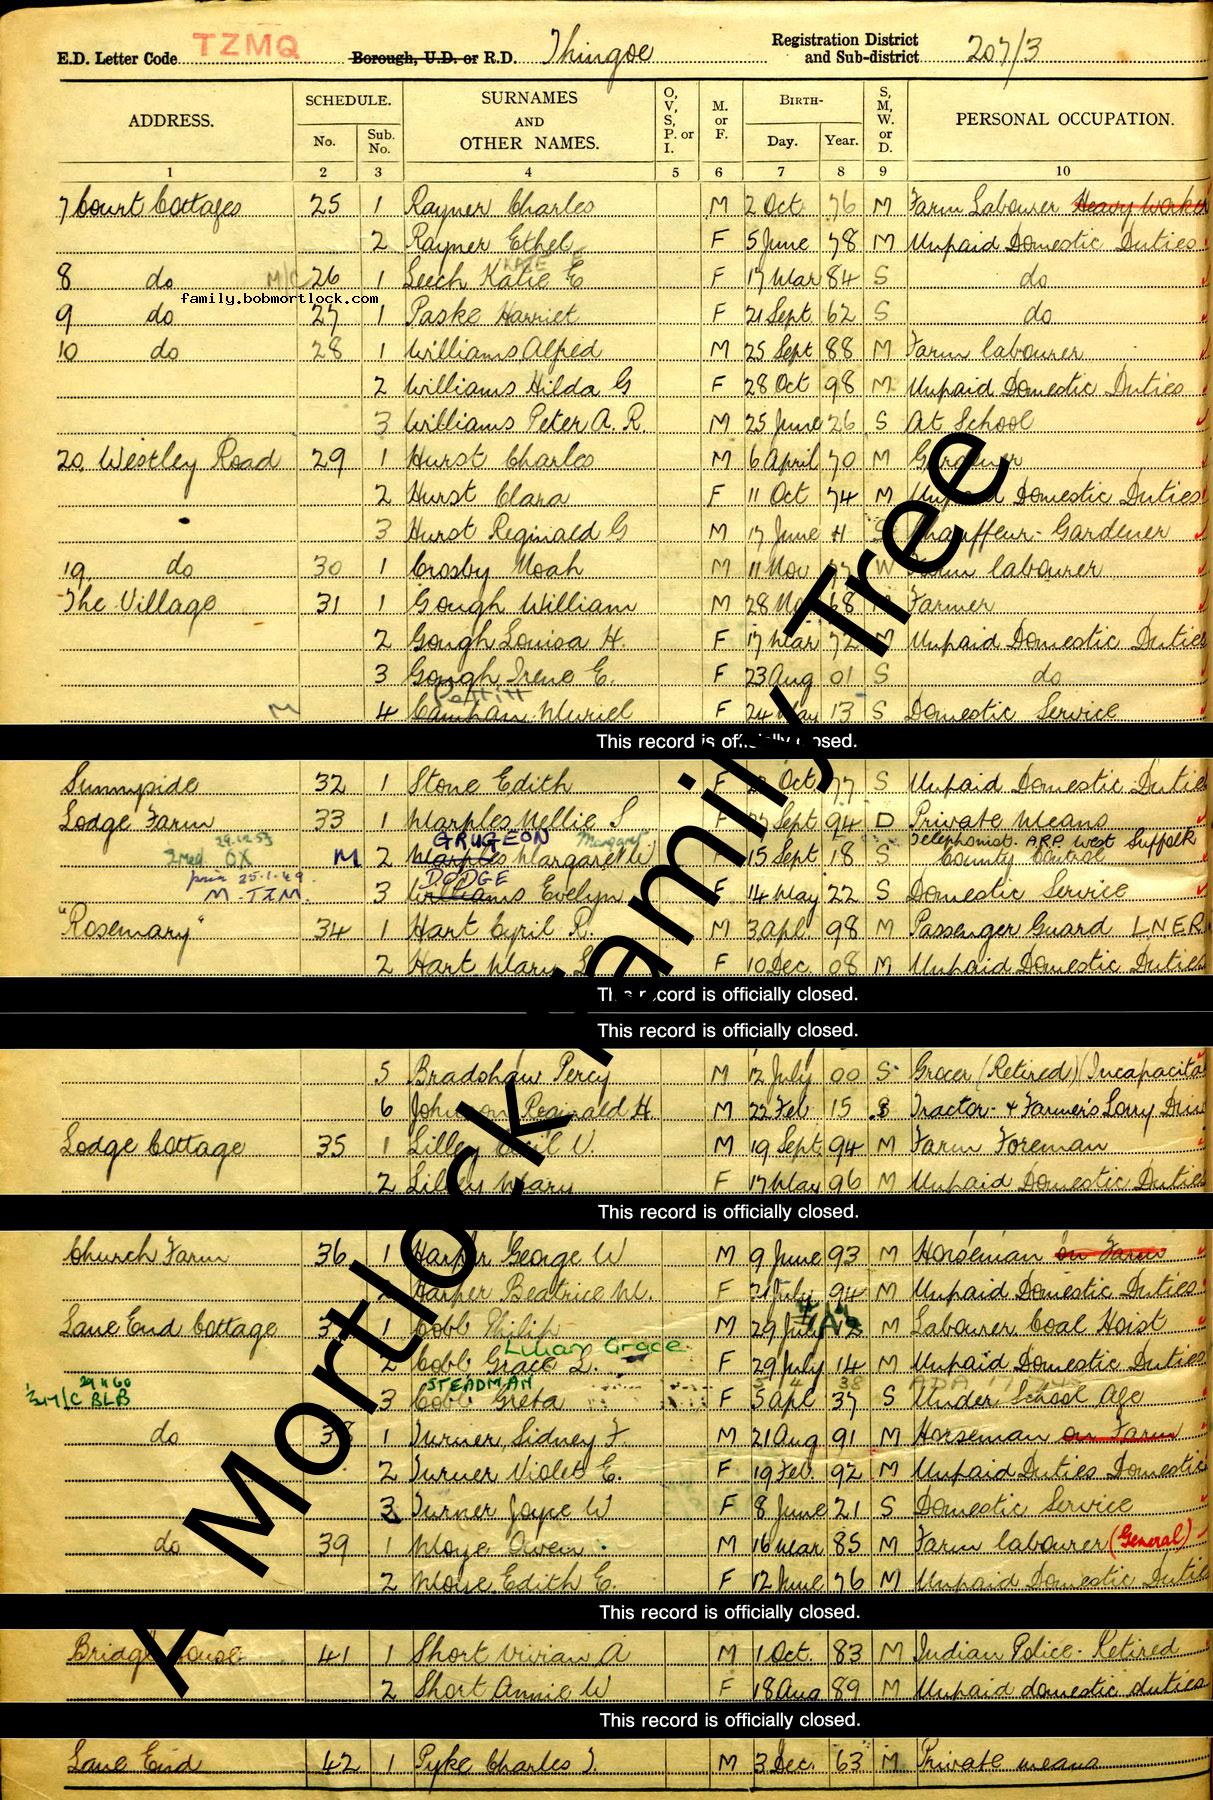 E.D. Letter Code TZMQ Borough, U.D. or R.D. Thingoe Registration District and Sub-district 207/3
ADDRESS. SCHEDULE. No. Sub. No. SURNAMES AND OTHER NAMES. O, V, S, P. or I. M. or F. BIRTH- Day. Year. S, M, W. or D. PERSONAL OCCUPATION.
1 2 3 4 5 6 7 8 9 10
7 Court Cottages 25 1 Rayner Charles M 2 Oct 76 M Farm Labourer Heavy Worker
2 Rayner Ethel F 5 June 78 M Unpaid Domestic Duties
KATE E
8 do M/C 26 1 Leech Katie E F 17 Mar 84 S do
family.bobmortlock.com
9 do 27 1 Paske Harriet F 21 Sept 62 S do
10 do 28 1 Williams Alfred M 25 Sept 88 M Farm labourer
2 Williams Hilda G F 28 Oct 98 M Unpaid Domestic Duties
3 Williams Peter A. R. M 25 June 26 S At School
20 Westley Road 29 1 Hurst Charles M 6 April 70 M Gardener
2 Hurst Clara F 11 Oct 74 M Unpaid Domestic Duties
3 Hurst Reginald G M 17 June 11 S Chauffeur-Gardener
19 do 30 1 Crosby Noah M 11 Nov W Farm labourer
The Village 31 1 Gough William M 28 68 M Farmer
2 Gough Louisa H. F 17 Mar 72 M Unpaid Domestic Duties
3 Gough Irene E. F 23 Aug 01 S do
Pettitt
M 4 Muriel F 24 May 13 S Domestic Service
This record is officially closed.
Sunnyside 32 1 Stone Edith F Oct 77 S Unpaid Domestic Duties
Lodge Farm 33 1 Marples Nellie S F Sept 94 D Private Means
29.12.53 GRUGEON Margaret Telephonist. ARP West Suffolk
OX M 2 Marples Margaret W F 15 Sept 18 S County Control
25.1.49 DODGE
M - TZM. 3 Williams Evelyn F 14 May 22 S Domestic Service
"Rosemary" 34 1 Hart Cyril R. M 3 Apl 98 M Passenger Guard LNER
2 Hart Mary F 10 Dec 08 M Unpaid Domestic Duties
This record is officially closed.
This record is officially closed.
5 Bradshaw Percy M 12 July 00 S Grocer (Retired) (Incapacita
6 Johnson Reginald H M 22 Feb 15 S Tractor- & Farmer's Lorry Driv
Lodge Cottage 35 1 Lilley Cecil V. M 19 Sept 94 M Farm Foreman
2 Lilley Mary F 17 May 96 M Unpaid Domestic Duties
This record is officially closed.
Church Farm 36 1 Harper George W M 9 June 93 M Horseman on Farm
2 Harper Beatrice M. F 21 July 94 M Unpaid Domestic Duties
Lane End Cottage 1 Cobb Philip M 29 July M Labourer Coal Hoist
Lilian Grace
2 Cobb Grace L. F 29 July 14 M Unpaid Domestic Duties
29 11 60 STEADMAN
M/C BLB 3 Cobb Greta F 5 Apl 37 S Under School Age
do 38 1 Turner Sidney F. M 21 Aug 91 M Horseman on Farm
2 Turner Violet E. F 19 Feb. 92 M Unpaid Duties Domestic
3 Turner Joyce W F 8 June 21 S Domestic Service
do 39 1 Moye Owen M 16 Mar 85 M Farm labourer (General)
2 Moye Edith E. F 12 June 76 M Unpaid Domestic Duties
This record is officially closed.
Bridge House 41 1 Short Vivian A M 1 Oct. 83 M Indian Police - Retired
2 Short Annie W F 18 Aug 89 M Unpaid domestic duties
This record is officially closed.
Lane End 42 1 Pyke Charles J. M 3 Dec. 63 M Private means
A Mortlock Family Tree